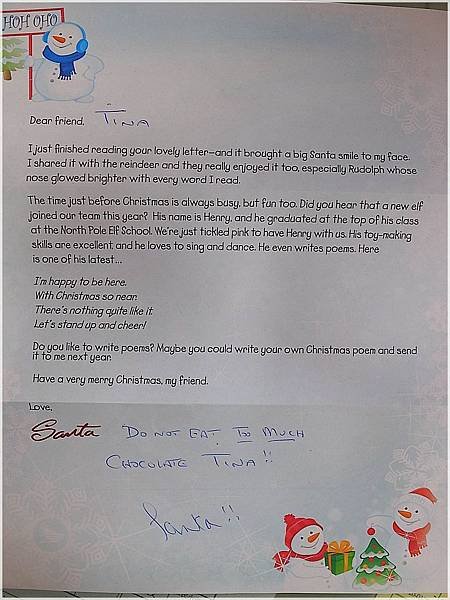 HOH OHO
Dear friend, TINA
I just finished reading your lovely letter—and it brought a big Santa smile to my face.
I shared it with the reindeer and they really enjoyed it too, especially Rudolph whose
nose glowed brighter with every word I read.
The time just before Christmas is always busy, but fun too. Did you hear that a new elf
joined our team this year? His name is Henry, and he graduated at the top of his class
at the North Pole Elf School. We're just tickled pink to have Henry with us. His toy-making
skills are excellent and he loves to sing and dance. He even writes poems. Here
is one of his latest...
I'm happy to be here.
With Christmas so near.
There's nothing quite like it.
Let's stand up and cheer!
Do you like to write poems? Maybe you could write your own Christmas poem and send
it to me next year.
Have a very merry Christmas, my friend.
Love,
Santa DO NOT EAT TO MUCH
CHOCOLATE TINA!!
Santa!!